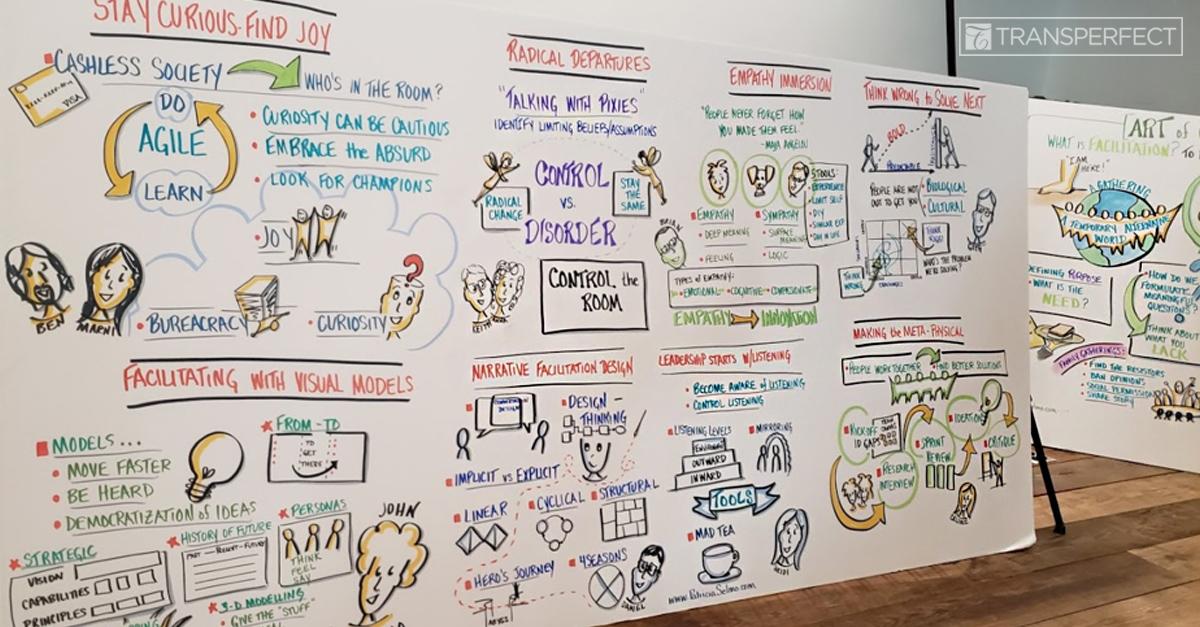 TRANSPERFECT
STAY CURIOUS-FIND JOY
CASHLESS SOCIETY
WHO'S IN THE ROOM?
VISA
DO
AGILE
LEARN
• CURIOSITY CAN BE CAUTIOUS
• EMBRACE the ABSURD
• LOOK FOR CHAMPIONS
• JOY
BEN
MARNI
• BUREACRACY
• CURIOSITY
RADICAL DEPARTURES
"TALKING WITH PIXIES"
IDENTIFY LIMITING BELIEFS/ASSUMPTIONS
CONTROL
VS.
DISORDER
RADICAL
CHANGE
STAY
THE
SAME
CONTROL the
ROOM
EMPATHY IMMERSION
"PEOPLE NEVER FORGET HOW
YOU MADE THEM FEEL."
-MAYA ANGELOU
BRIAN
EMPATHY
• DEEP MEANING
• FEELING
SYMPATHY
• SURFACE
MEANING
• LOGIC
5 TOOLS:
EXPERIENCE
LIMIT SELF
DIY
SIMILAR EXP.
DAY IN LIFE
TYPES of EMPATHY:
• EMOTIONAL • COGNITIVE • COMPASSIONATE
EMPATHY INNOVATION
THINK WRONG to SOLVE NEXT
BOLD
PEOPLE ARE NOT
OUT TO GET YOU
• BIOLOGICAL
• CULTURAL
THINK
WRONG
WHAT'S THE PROBLEM
WE'RE SOLVING?
FACILITATING WITH VISUAL MODELS
MODELS...
• MOVE FASTER
• BE HEARD
• DEMOCRATIZATION of IDEAS
FROM-TO
TO
GET
THERE
STRATEGIC
VISION
CAPABILITIES
PRINCIPLES
HISTORY OF FUTURE
PAST — PRESENT — FUTURE
PERSONAS
THINK
FEEL
SAY
3-D MODELLING
GIVE THE "STUFF"
JOHN
NARRATIVE FACILITATION DESIGN
DESIGN-
THINKING
IMPLICIT vs EXPLICIT
LINEAR
CYCLICAL
STRUCTURAL
HERO'S JOURNEY
4 SEASONS
DANIEL
LEADERSHIP STARTS W/LISTENING
• BECOME AWARE of LISTENING
• CONTROL LISTENING
LISTENING LEVELS
OUTWARD
INWARD
MIRRORING
TOOLS
MAD TEA
HEIDI
www.PatriciaSelmo.com
MAKING the META-PHYSICAL
• PEOPLE WORK TOGETHER • FIND BETTER SOLUTIONS
KICKOFF
ID GAPS
RESEARCH
INTERVIEW
SPRINT
REVIEW
IDEATION
CRITIQUE
ART of
WHAT IS FACILITATION? TO
"I AM
HERE!"
A GATHERING
A TEMPORARY ALTERNATIVE
WORLD
DEFINING PURPOSE
• WHAT IS THE
NEED?
• HOW DO WE
FORMULATE
MEANINGFUL
QUESTIONS?
• THINK ABOUT
WHAT YOU
LACK
FAMILY GATHERINGS:
• FIND THE RESISTORS
• BAN OPINIONS
• SOCIAL PERMISSION
• SHARE STORY